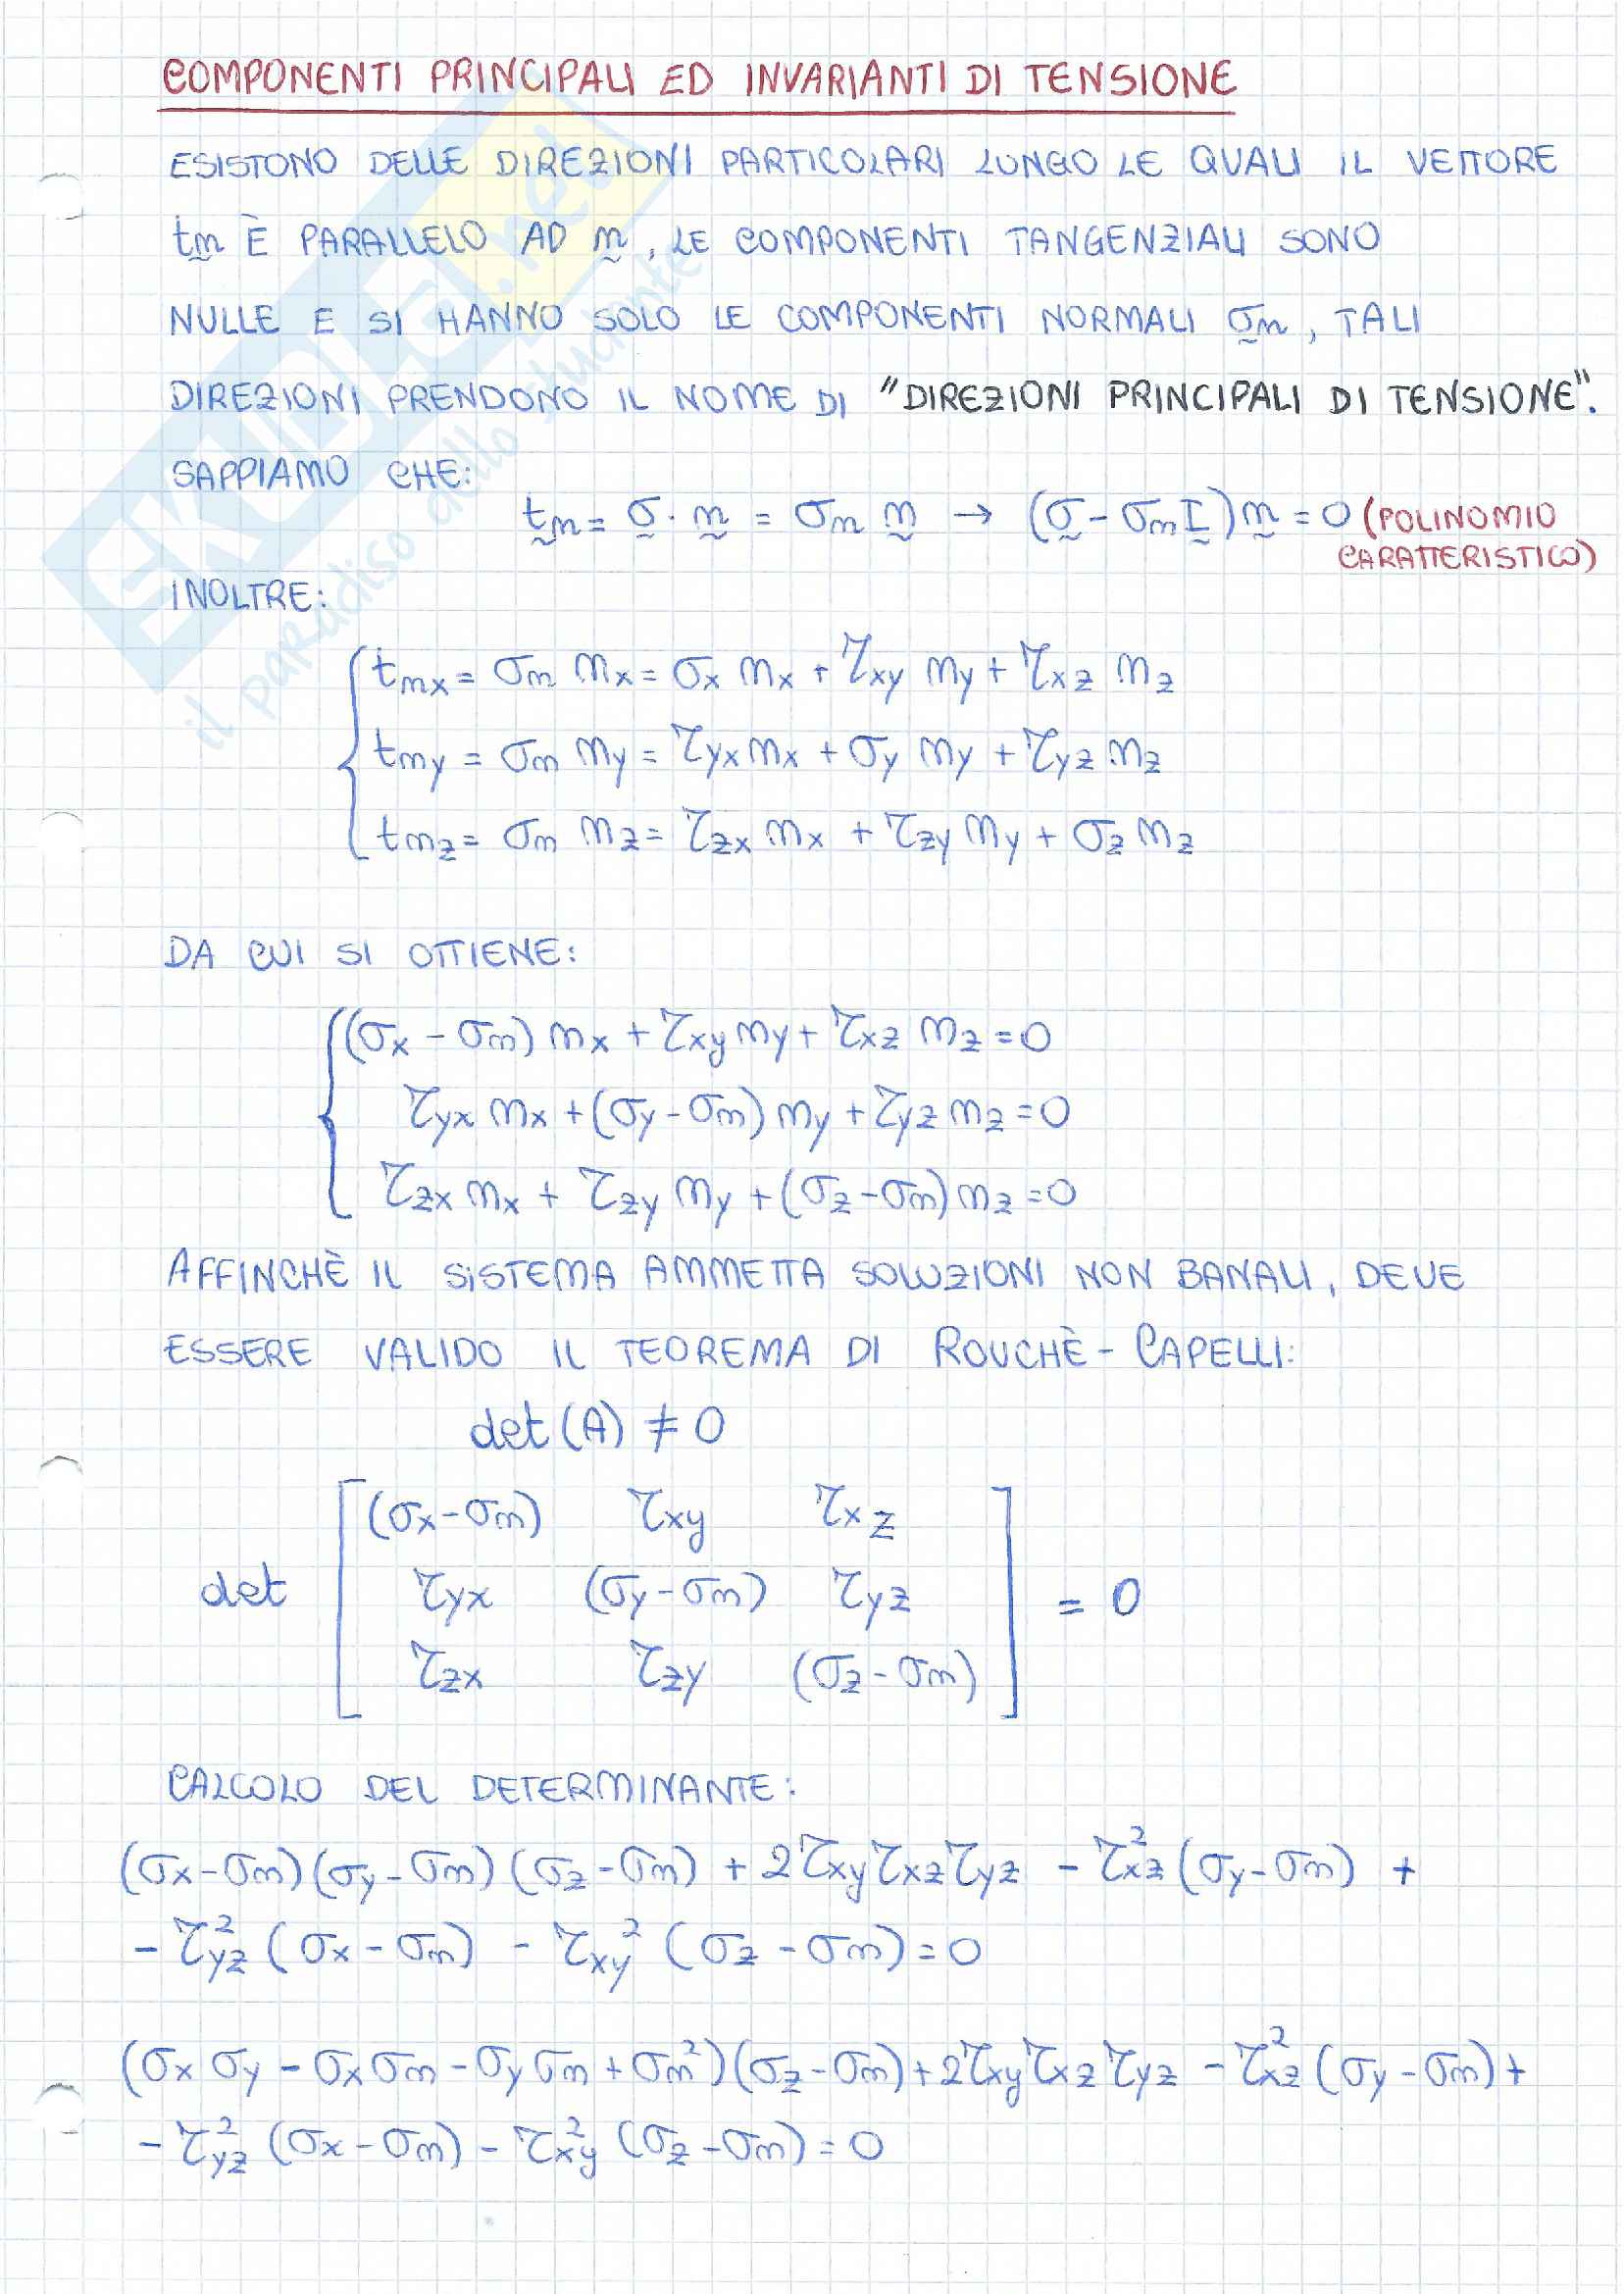 COMPONENTI PRINCIPALI ED INVARIANTI DI TENSIONE
ESISTONO DELLE DIREZIONI PARTICOLARI LUNGO LE QUALI IL VETTORE
tn È PARALLELO AD n, LE COMPONENTI TANGENZIALI SONO
NULLE E SI HANNO SOLO LE COMPONENTI NORMALI σn, TALI
DIREZIONI PRENDONO IL NOME DI "DIREZIONI PRINCIPALI DI TENSIONE".
SAPPIAMO CHE:
tn = σ · n = σn n → (σ - σn I) n = 0 (POLINOMIO
CARATTERISTICO)
INOLTRE:
tnx = σn nx = σx nx + τxy ny + τxz nz
tny = σn ny = τyx nx + σy ny + τyz nz
tnz = σn nz = τzx nx + τzy ny + σz nz
DA CUI SI OTTIENE:
(σx - σn) nx + τxy ny + τxz nz = 0
τyx nx + (σy - σn) ny + τyz nz = 0
τzx nx + τzy ny + (σz - σn) nz = 0
AFFINCHÈ IL SISTEMA AMMETTA SOLUZIONI NON BANALI, DEVE
ESSERE VALIDO IL TEOREMA DI ROUCHÈ - CAPELLI:
det (A) ≠ 0
(σx - σn) τxy τxz
det τyx (σy - σn) τyz = 0
τzx τzy (σz - σn)
CALCOLO DEL DETERMINANTE:
(σx - σn)(σy - σn)(σz - σn) + 2τxy τxz τyz - τxz² (σy - σn) +
- τyz² (σx - σn) - τxy² (σz - σn) = 0
(σx σy - σx σn - σy σn + σn²)(σz - σn) + 2τxy τxz τyz - τxz² (σy - σn) +
- τyz² (σx - σn) - τxy² (σz - σn) = 0
SKUOLA.net
il paradiso dello studente